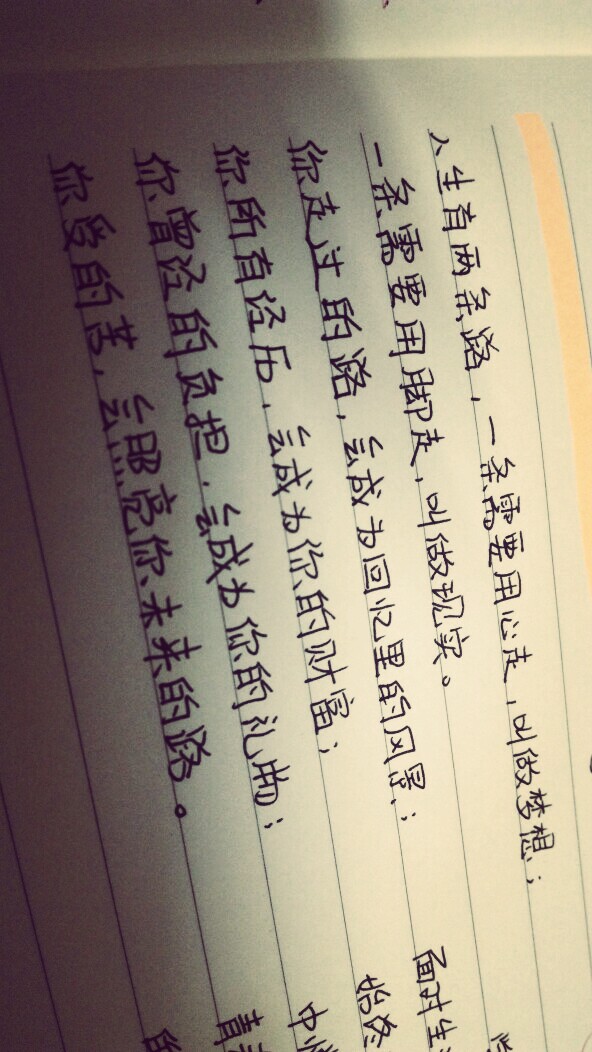 人生有两条路，一条需要用心走，叫做梦想；
一条需要用脚走，叫做现实。
你走过的路，会成为回忆里的风景；
你所有经历，会成为你的财富；
你曾经的负担，会成为你的礼物；
你受的苦，会照亮你未来的路。
面对生
始终